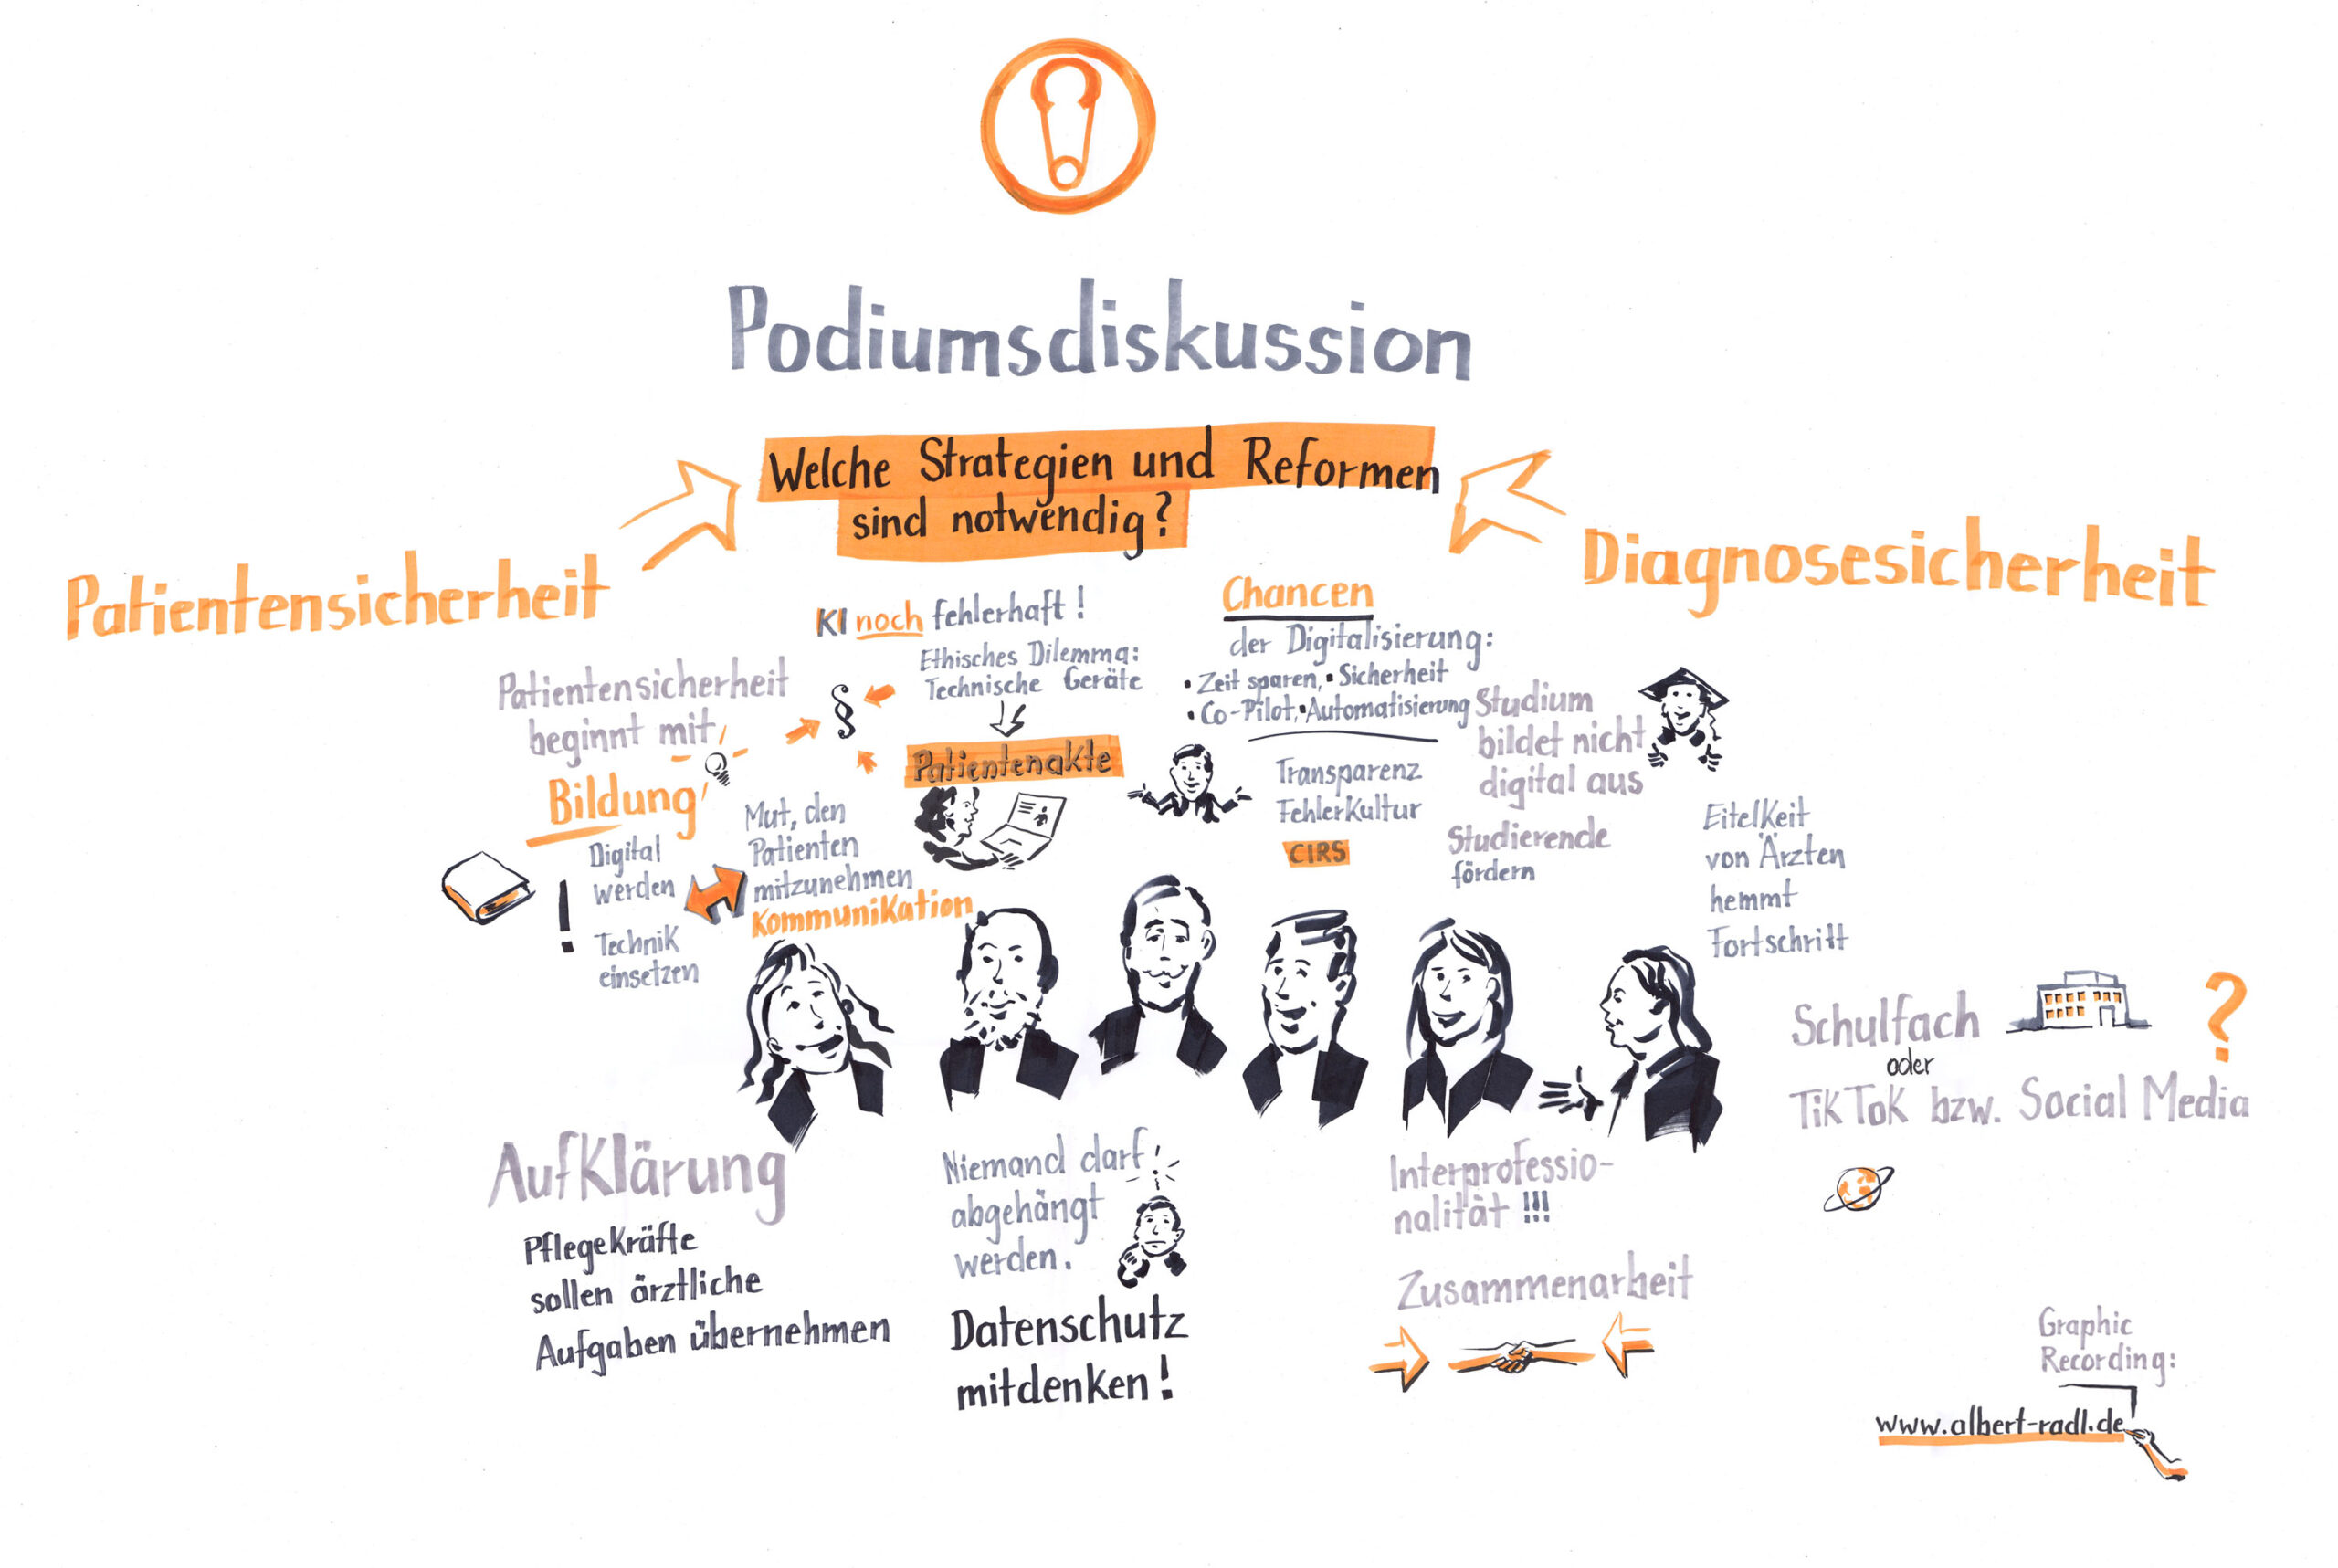 Podiumsdiskussion
Welche Strategien und Reformen
sind notwendig?
Patientensicherheit
Diagnosesicherheit
KI noch fehlerhaft!
Ethisches Dilemma:
Technische Geräte
§
Patientenakte
Chancen
der Digitalisierung:
• Zeit sparen, • Sicherheit
• Co-Pilot, • Automatisierung
Transparenz
Fehlerkultur
CIRS
Patientensicherheit
beginnt mit
Bildung
Digital
werden
!
Technik
einsetzen
Mut, den
Patienten
mitzunehmen
Kommunikation
Studium
bildet nicht
digital aus
Studierende
fördern
Eitelkeit
von Ärzten
hemmt
Fortschritt
Schulfach
oder
TikTok bzw. Social Media
?
Aufklärung
Pflegekräfte
sollen ärztliche
Aufgaben übernehmen
Niemand darf
abgehängt
werden.
Datenschutz
mitdenken!
Interprofessio-
nalität !!!
Zusammenarbeit
Graphic
Recording:
www.albert-radl.de